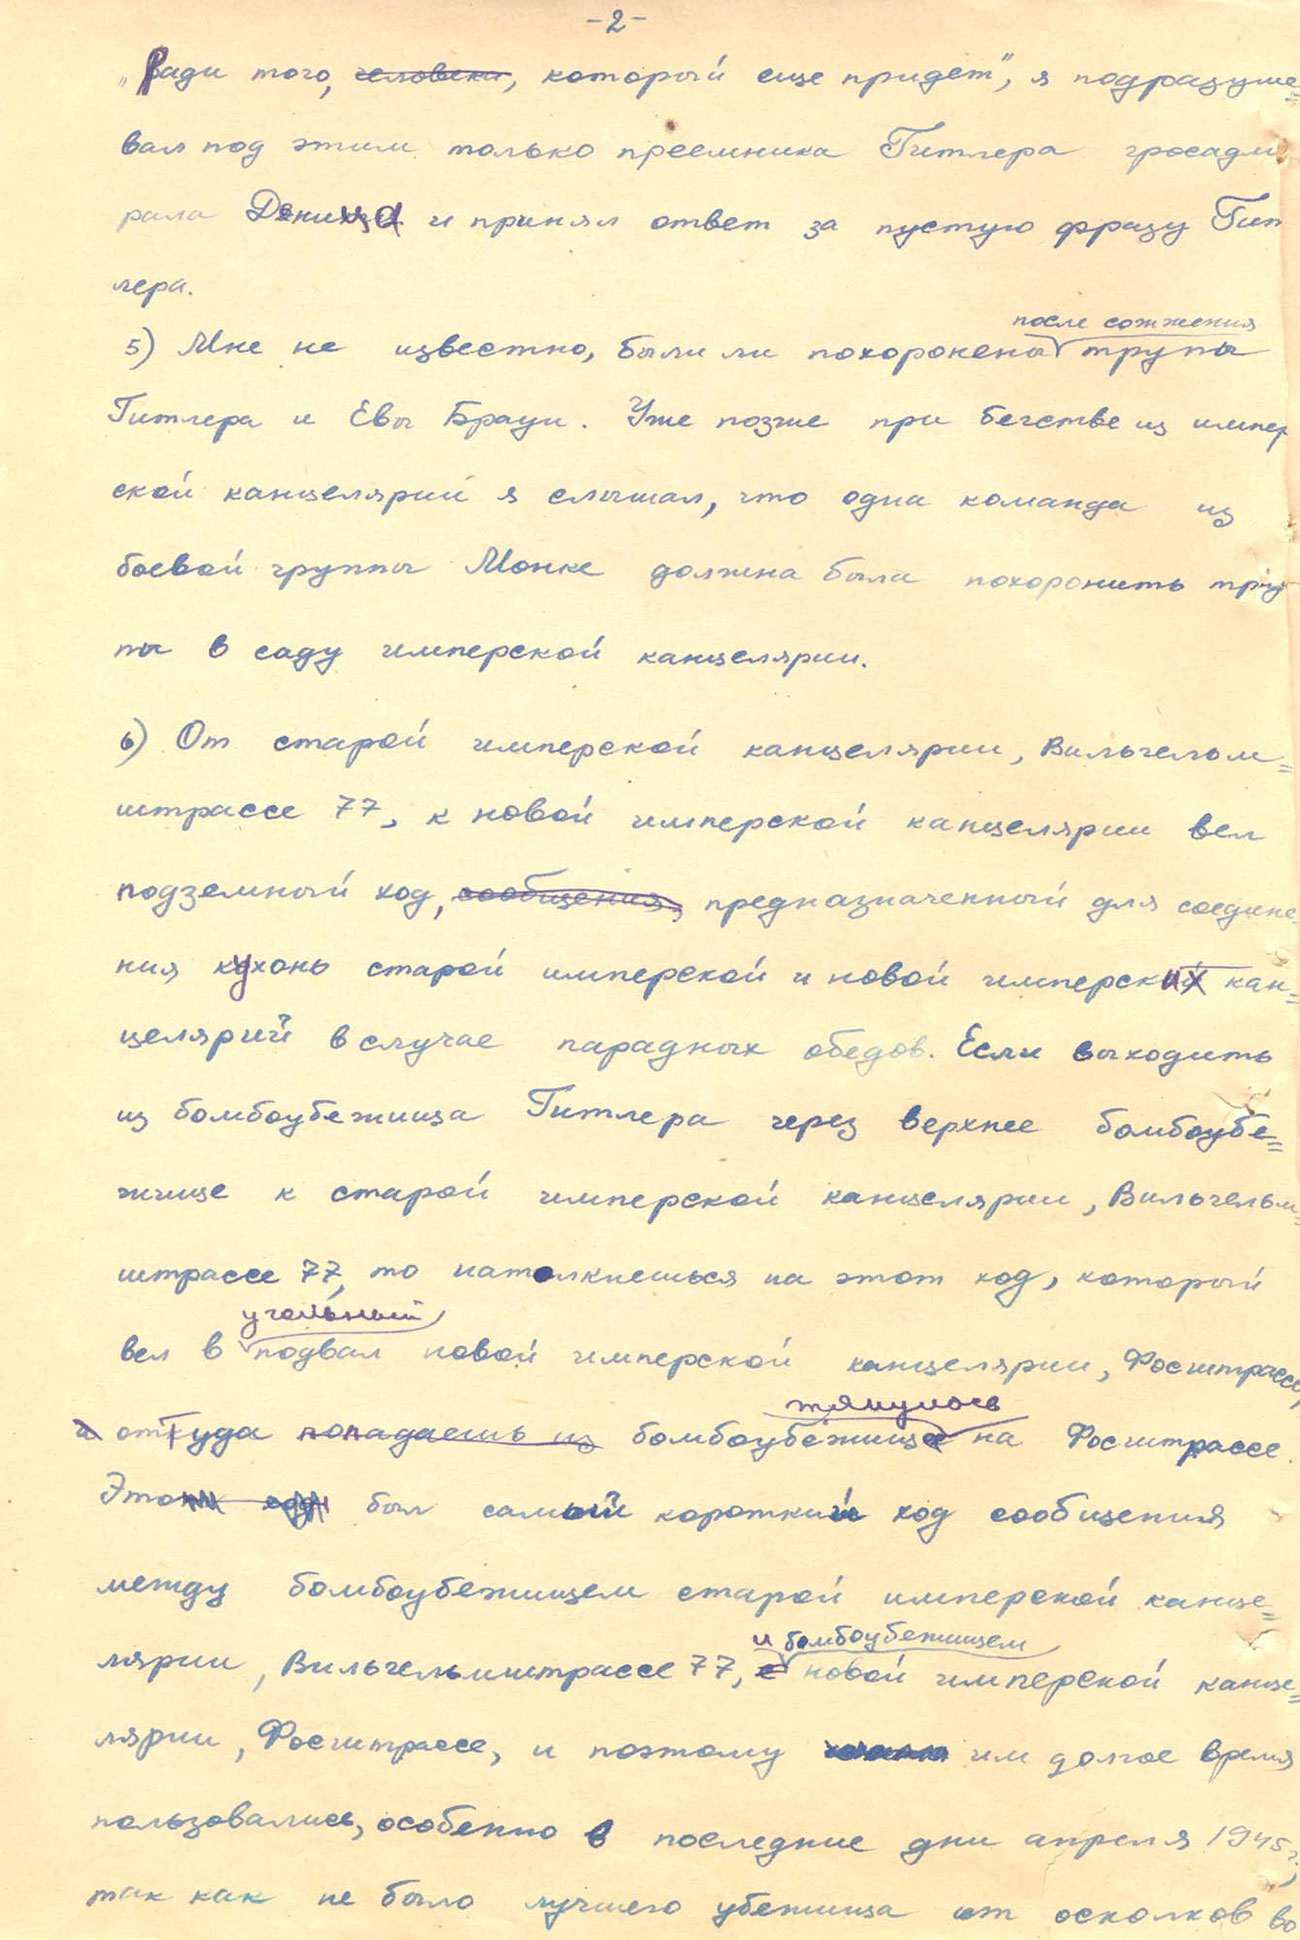 -2-
„Ради того, человека, который еще придет", я подразуме=
вал под этим только преемника Гитлера гросадми
рала Деница и принял ответ за пустую фразу Гит
лера.
после сожжения
5) Мне не известно, были ли похоронены трупы
Гитлера и Евы Браун. Уже позже при бегстве из импер
ской канцелярии я слышал, что одна команда из
боевой группы Монке должна была похоронить тру
пы в саду имперской канцелярии.
6) От старой имперской канцелярии, Вильгельм=
штрассе 77, к новой имперской канцелярии вел
подземный ход, сообщения, предназначенный для соедине=
ния кухонь старой имперской и новой имперских кан=
целярий в случае парадных обедов. Если выходить
из бомбоубежища Гитлера через верхнее бомбоубе=
жище к старой имперской канцелярии, Вильгельм=
штрассе 77, то натолкнешься на этот ход, который
угольный
вел в подвал новой имперской канцелярии, Фосштрассе,
тянулось
и оттуда попадаешь из бомбоубежище на Фосштрассе.
Это был самый короткий ход сообщения
между бомбоубежищем старой имперской канце=
и бомбоубежищем
лярии, Вильгельмштрассе 77, с новой имперской канце=
лярии, Фосштрассе, и поэтому им долгое время
пользовались, особенно в последние дни апреля 1945 г.,
так как не было лучшего убежища от осколков во